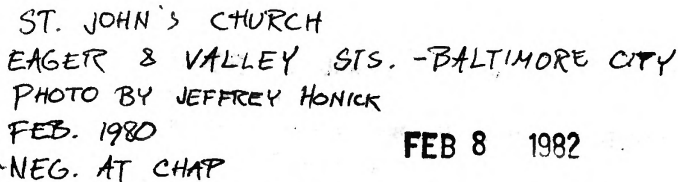 ST. JOHN'S CHURCH
EAGER & VALLEY STS. -BALTIMORE CITY
PHOTO BY JEFFREY HONICK
FEB. 1980
FEB 8 1982
-NEG. AT CHAP